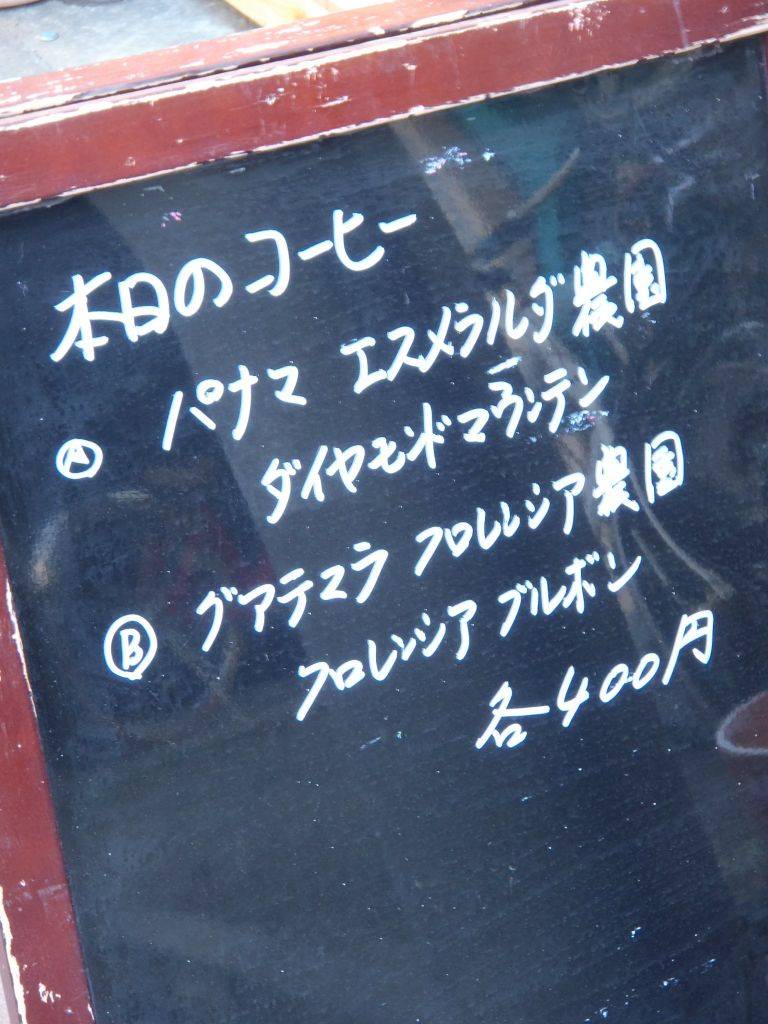 本日のコーヒー
Ⓐ パナマ エスメラルダ農園
ダイヤモンドマウンテン
Ⓑ グアテマラ フロレンシア農園
フロレンシア ブルボン
各400円